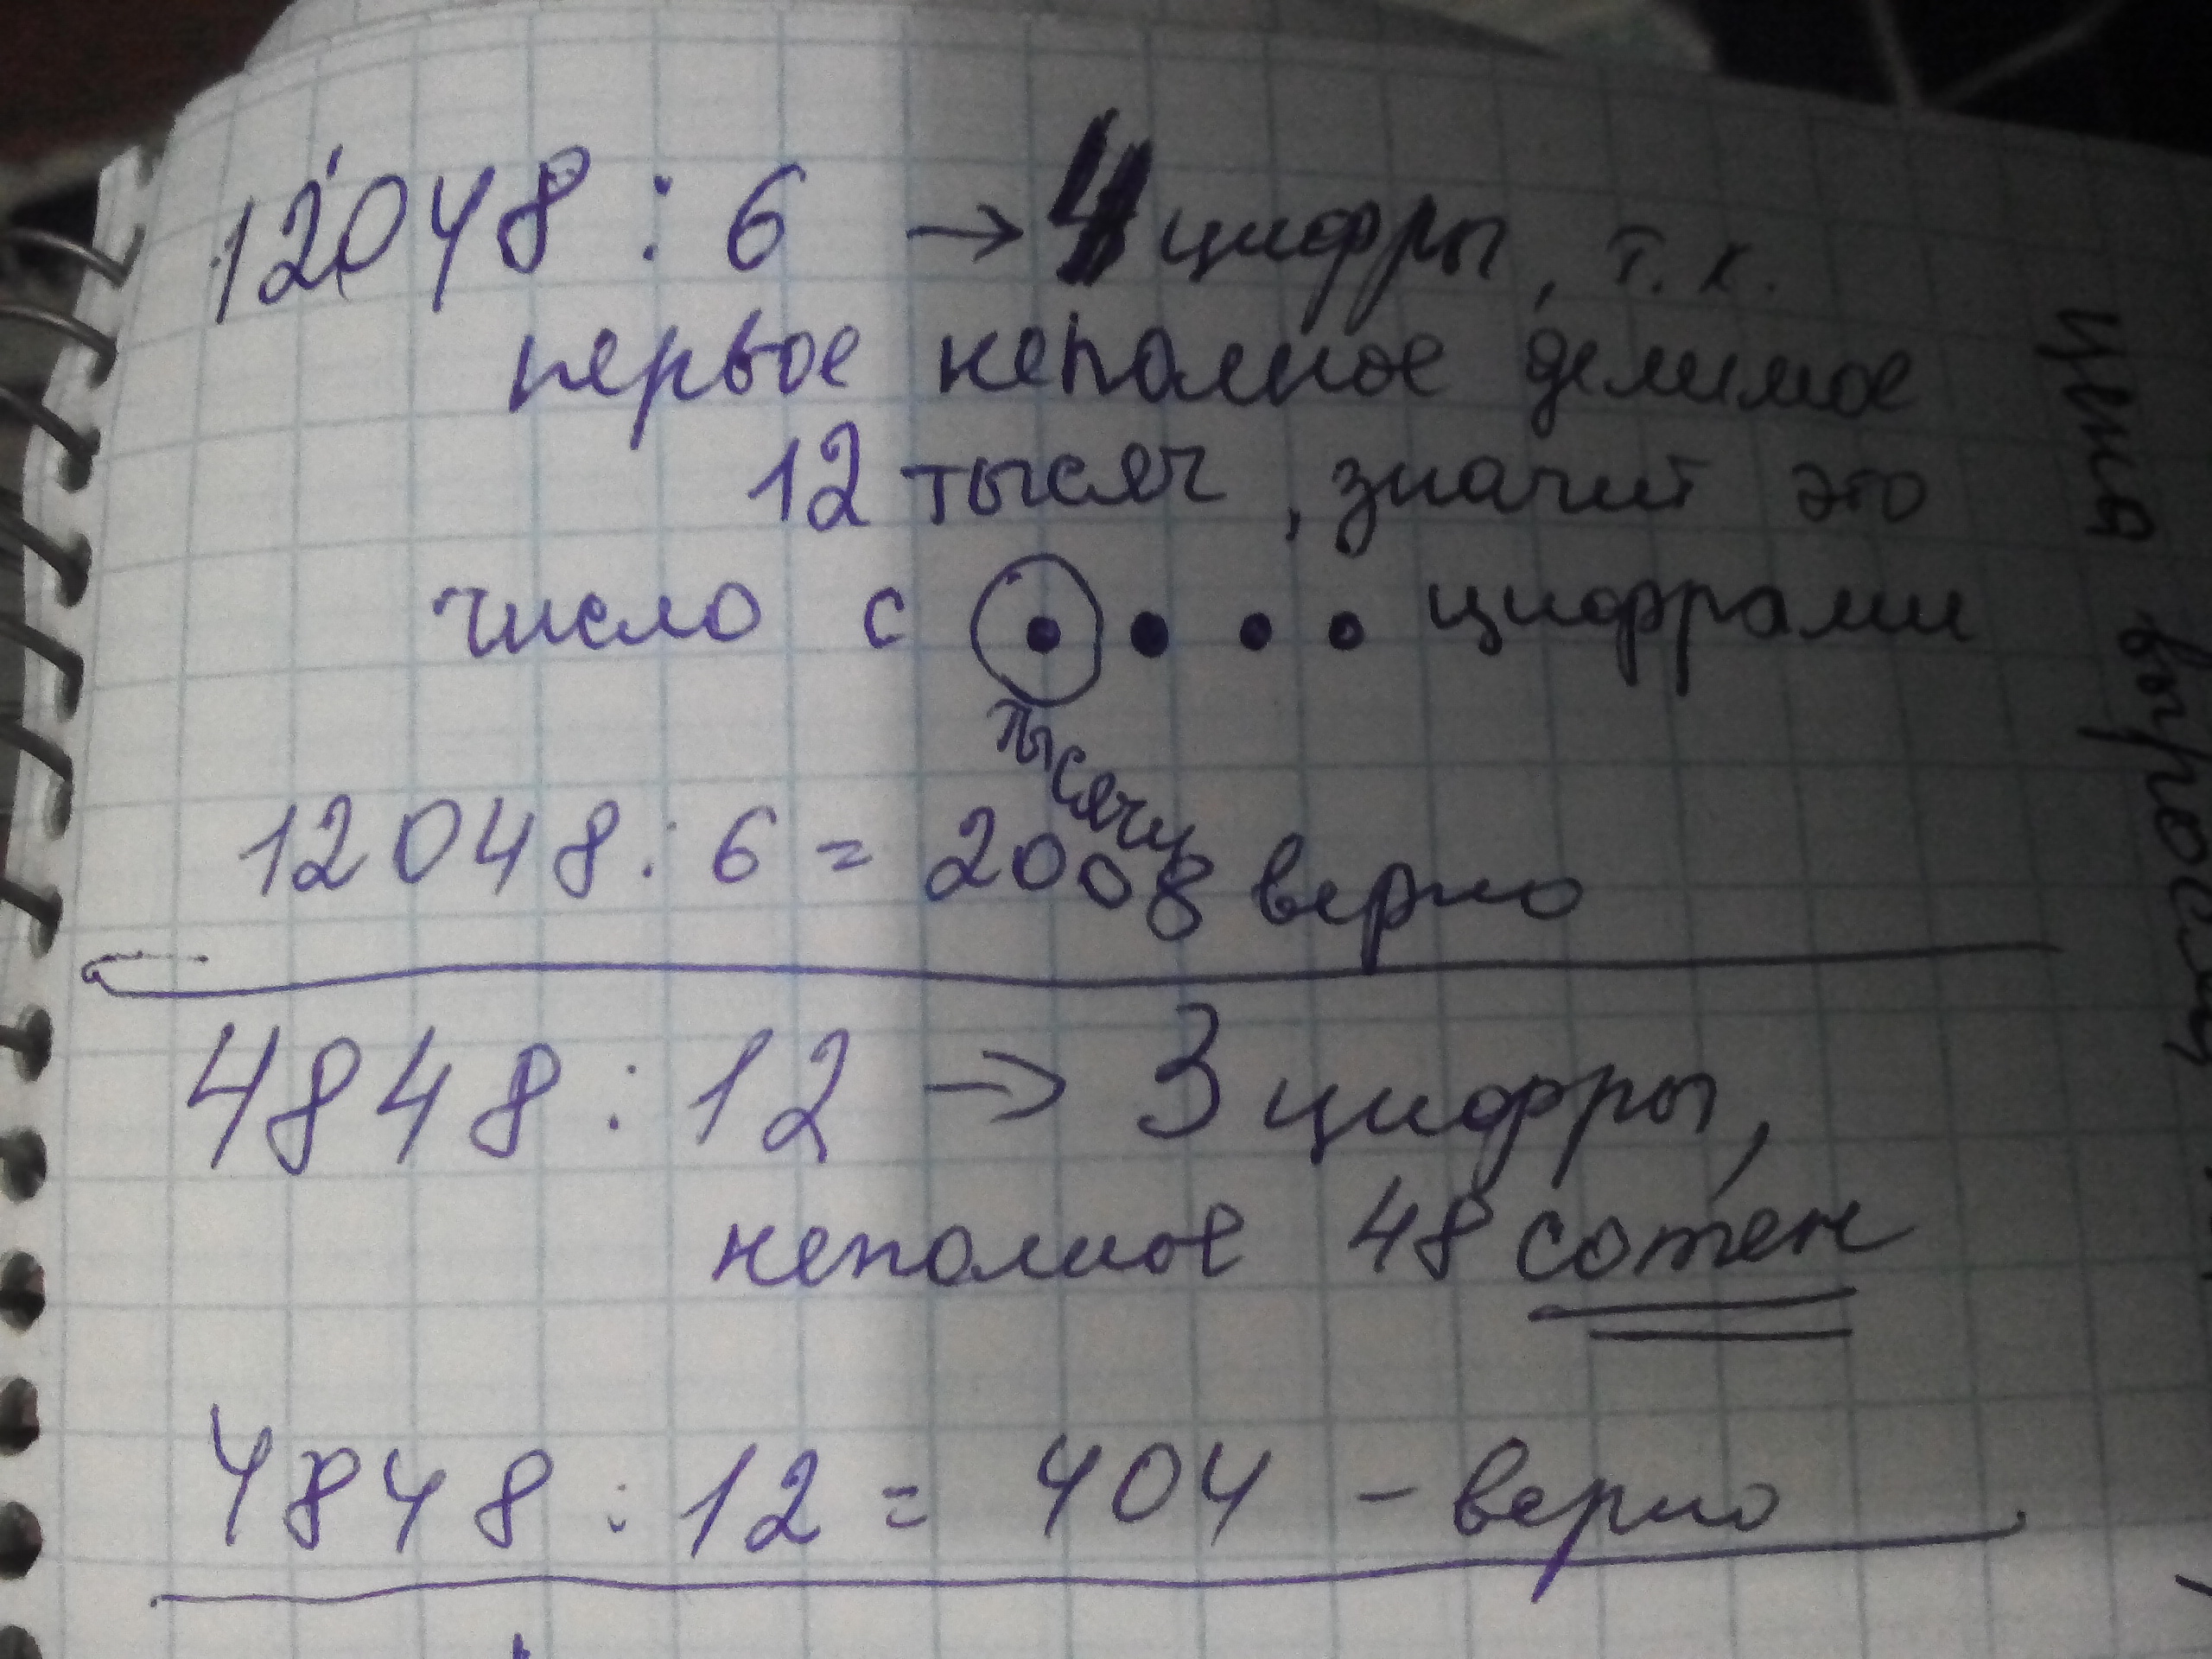 12048 : 6 → 4 цифры, т.к.
первое неполное делимое
12 тысяч, значит это
число с • • • • цифрами
тысячи
12048 : 6 = 2008 верно
4848 : 12 → 3 цифры,
неполное 48 сотен
4848 : 12 = 404 - верно